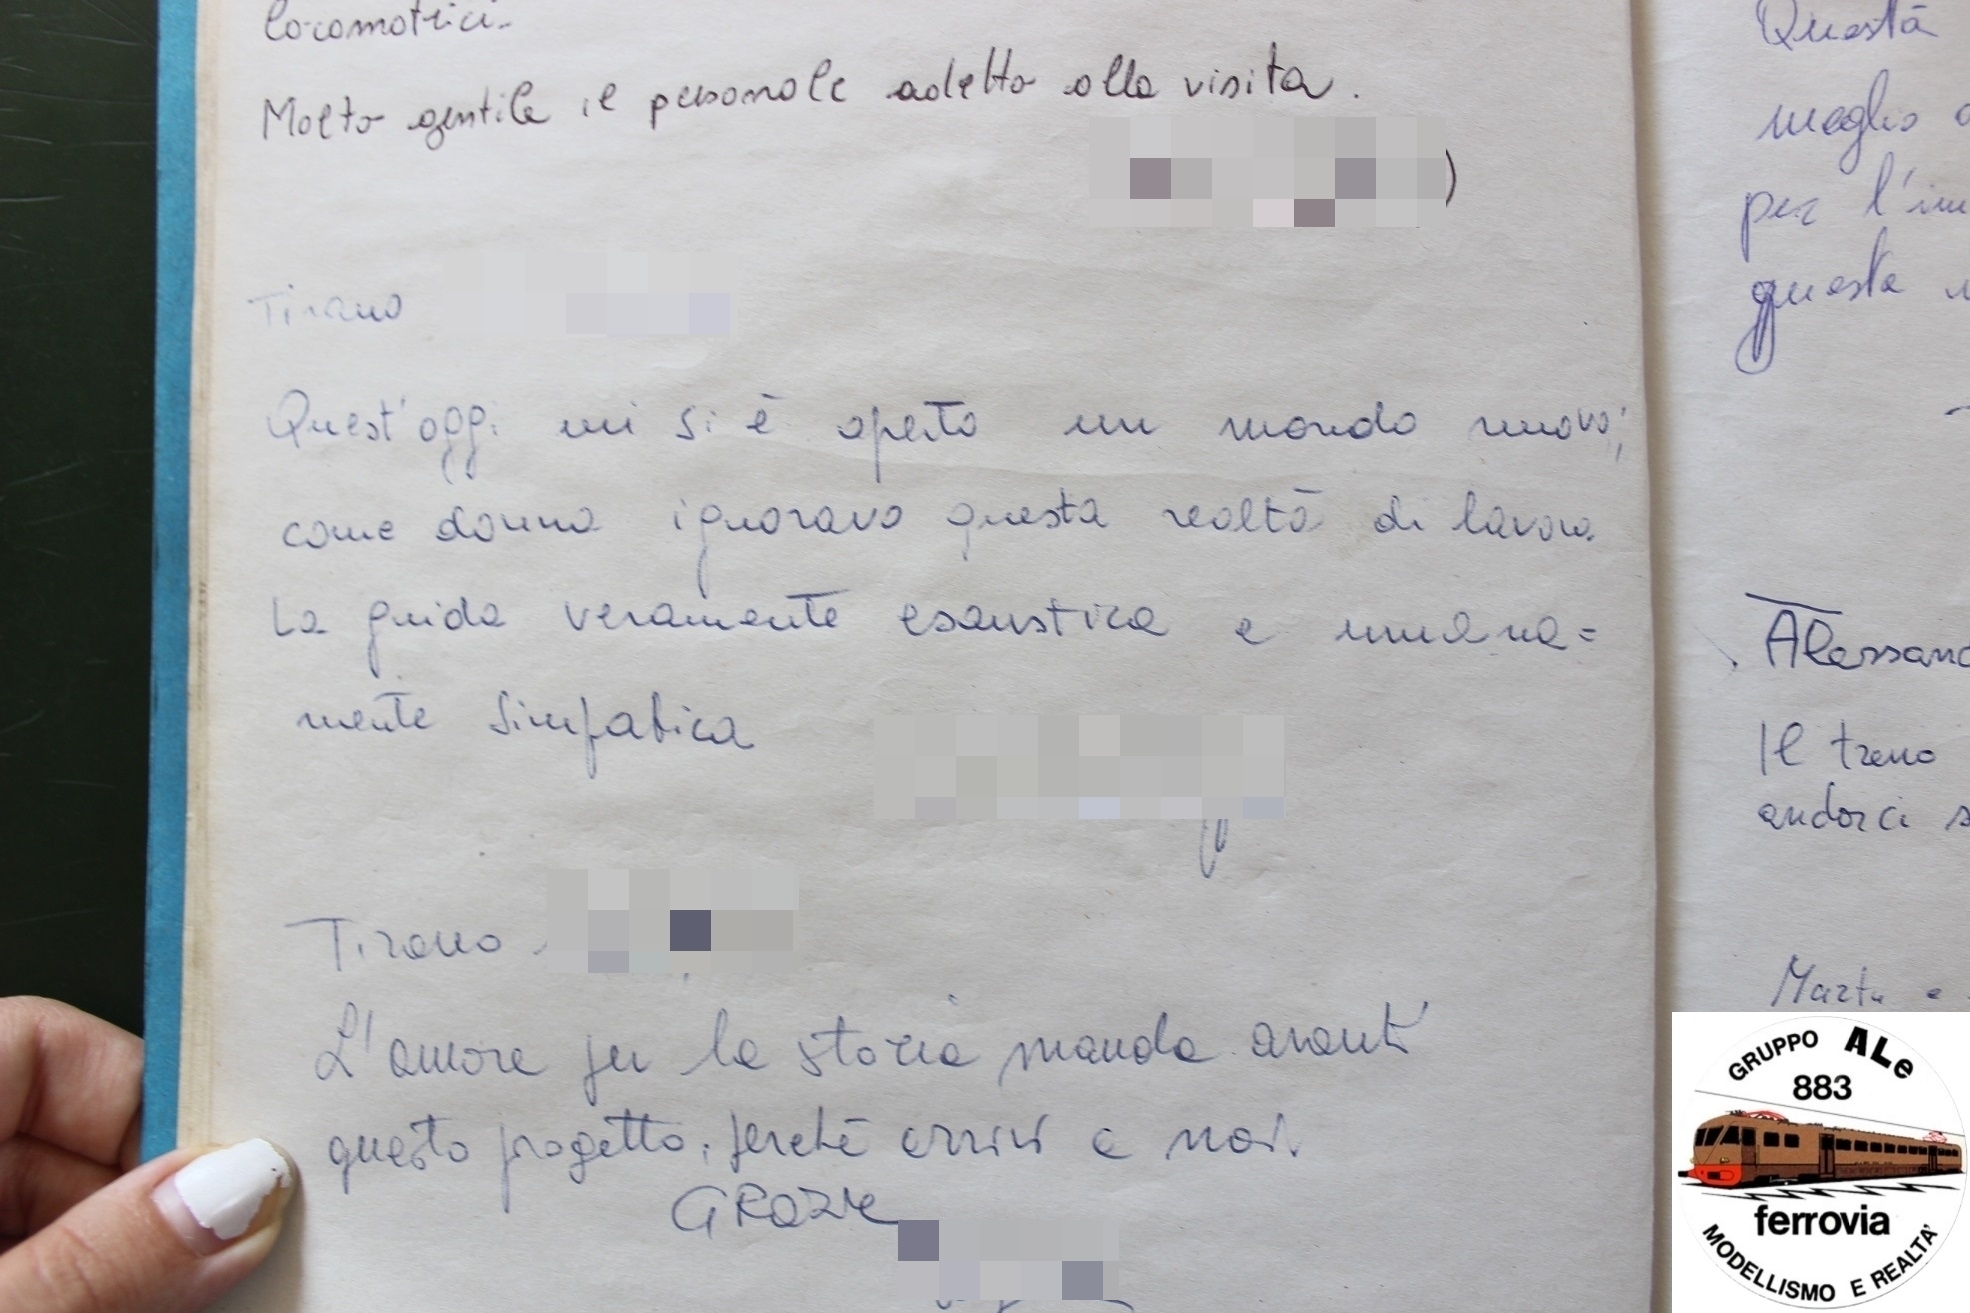 locomotrici.
Molto gentile il personale adetto alla visita.
)
Tirano
Quest'oggi mi si è aperto un mondo nuovo;
come donna ignoravo questa realtà di lavoro.
La guida veramente esaustica e umana=
mente simpatica
Tirano
L'amore per la storia manda avanti
questo progetto, perchè arrivi a noi.
GRAZIE
Questa
meglio
per l'im
questa
Alessand
Il treno
andarci s
Marta e
GRUPPO ALe
883
ferrovia
MODELLISMO E REALTA'